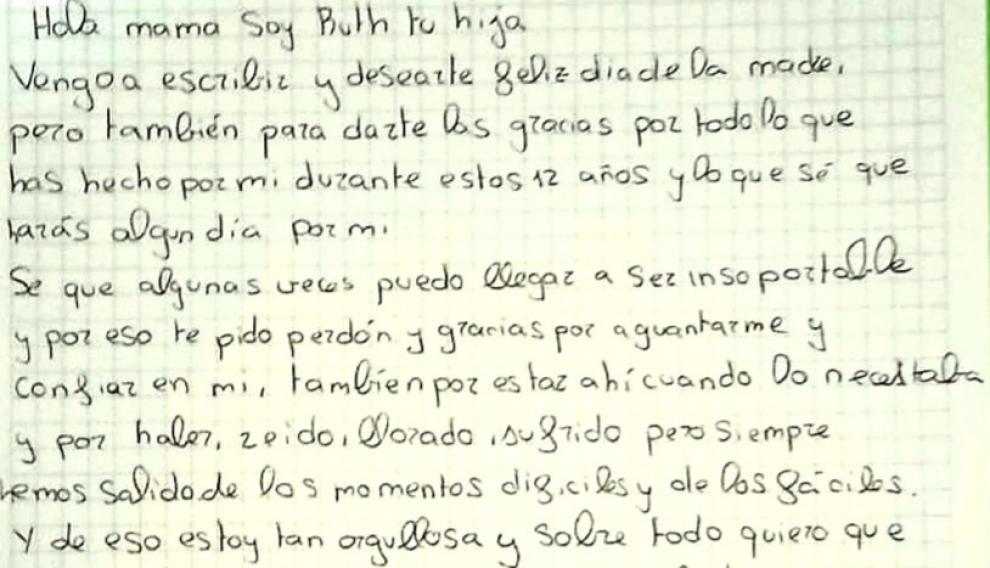 Hola mama soy Ruth tu hija
Vengo a escribir y desearte feliz dia de la madre,
pero también para darte las gracias por todo lo que
has hecho por mi durante estos 12 años y lo que sé que
harás algun día por mi
Se que algunas veces puedo llegar a ser insoportable
y por eso te pido perdón y gracias por aguantarme y
confiar en mi, tambien por estar ahí cuando lo necesitaba
y por haber, reido, llorado, sufrido pero siempre
hemos salido de los momentos dificiles y de los fáciles.
Y de eso estoy tan orgullosa y sobre todo quiero que